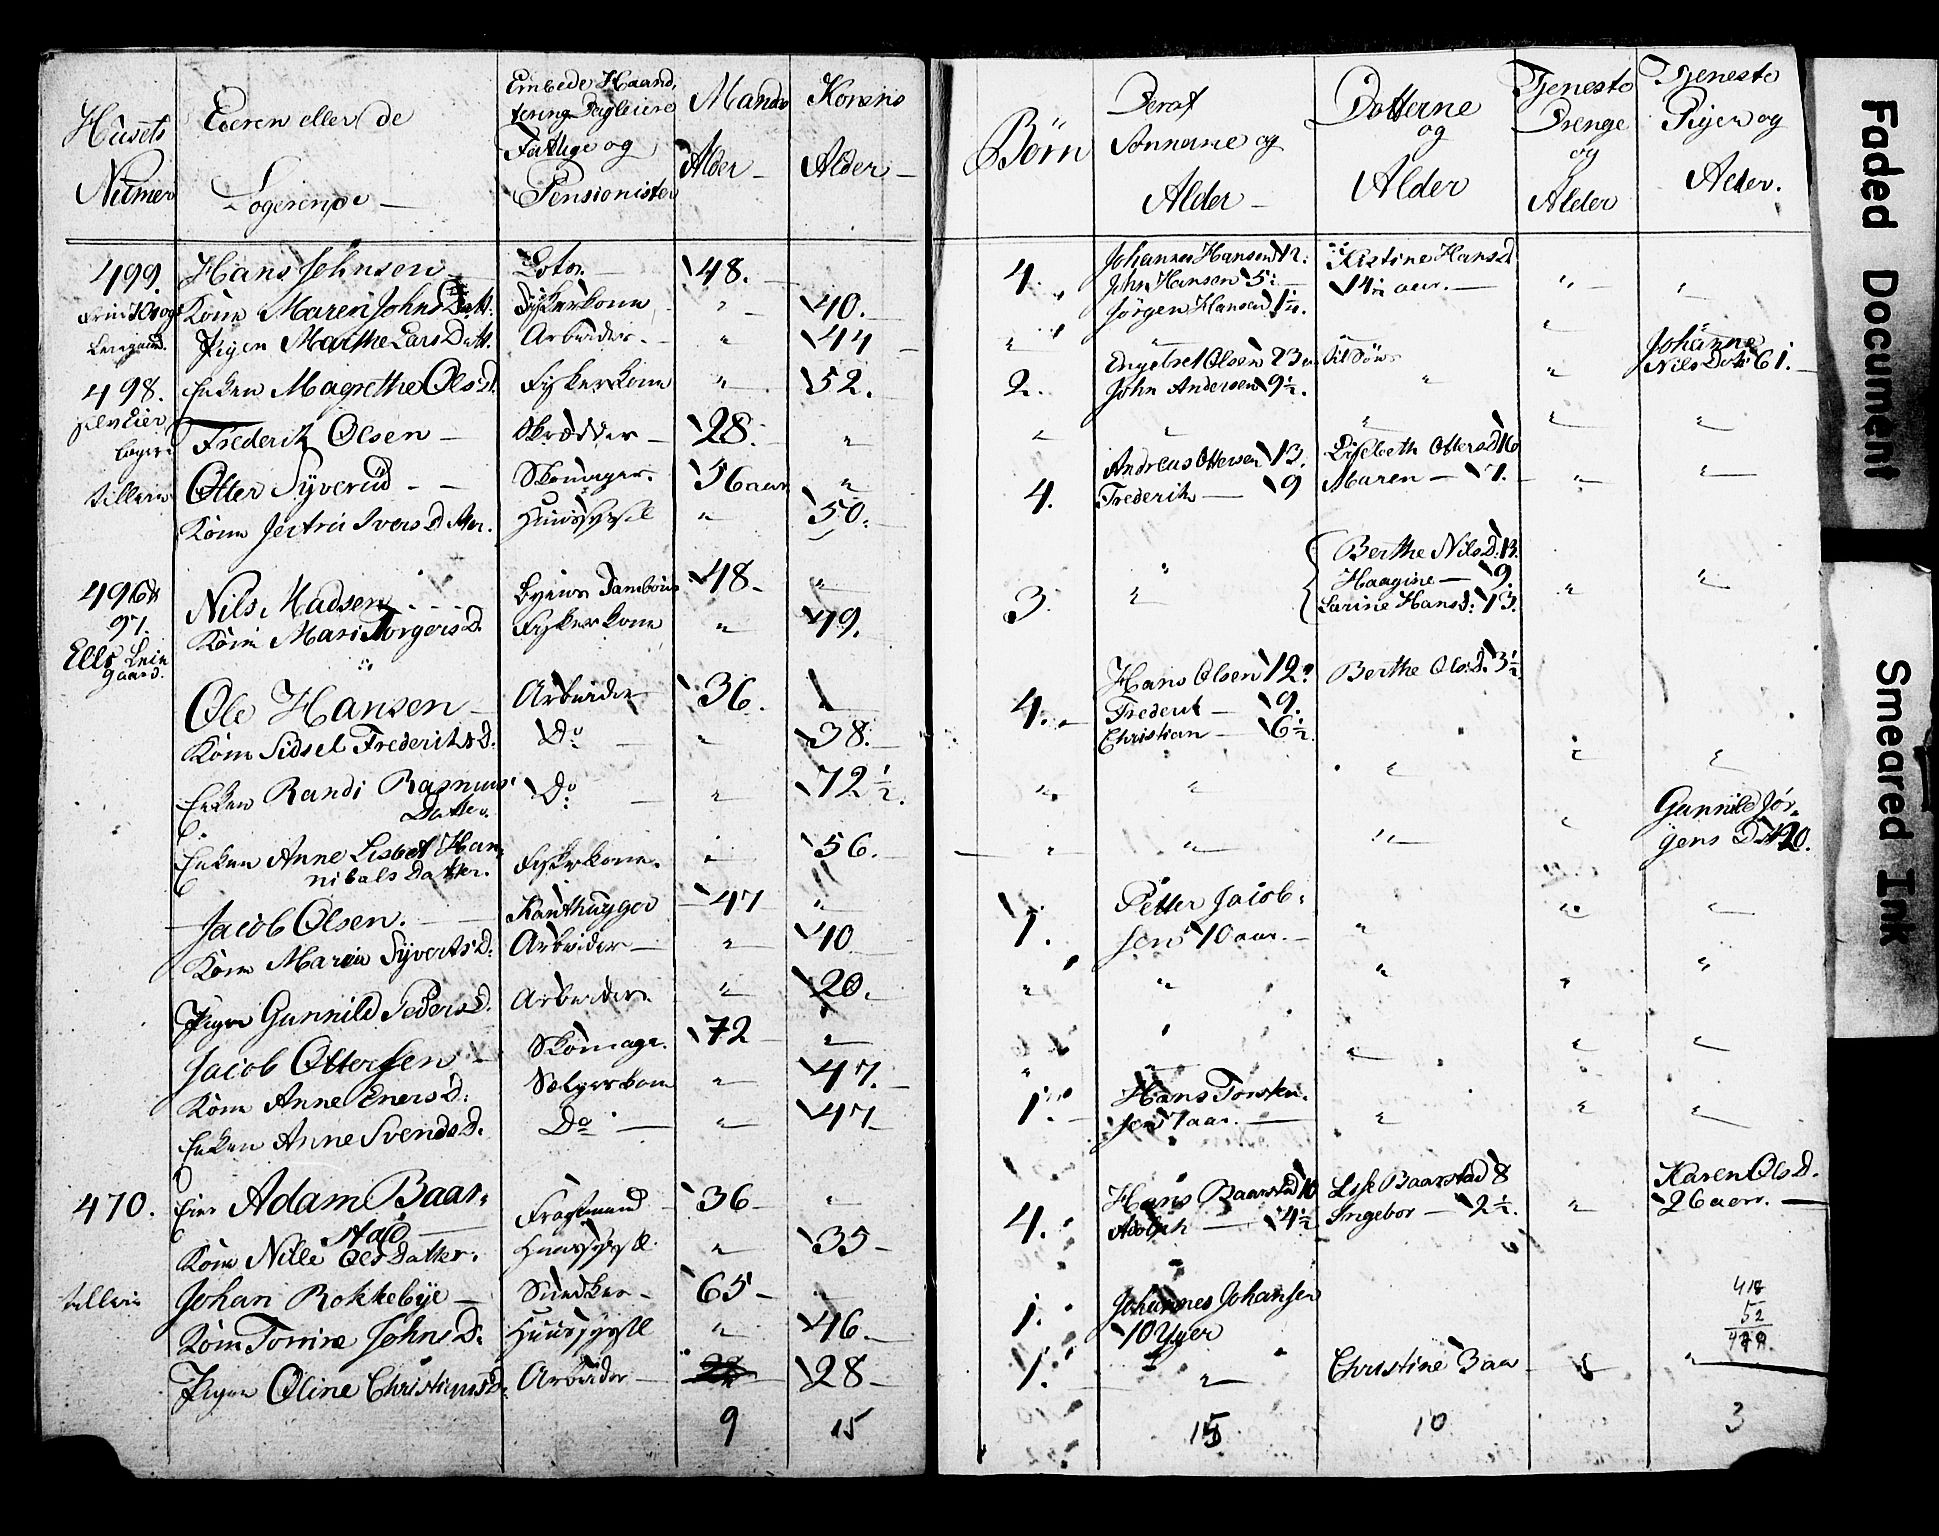 Husets Numer
Eieren eller de Logerende —
Embede Haandtering Dagleiere Fattige og Pensionister
Mands Alder —
Konens Alder —
Børn
Deraf Sønnerne og Alder —
Døtterne og Alder
Tjeneste Drenge og Alder
Tjeneste Piger og Alder.
499. Hans Johnsen — Lots. — 48. —
4. Johannes Hansen 12. Kistine Hansd.
John Hansen 5. 14½ aar. —
Jörgen Hansen 1½.
Kone Maren Johns Datt. Fiskerkone " 40.
Leiegaard. Pigen Marthe Lars Datt. Arbeider. " 44 —
498. Enken Magrethe Olsd. Fiskerkone " 52.
2. Engebret Olsen 23
John Andersen 9½.
Johanne Nils Dotr 61.
Frederik Olsen — Skrædder — 28.
tilleie Otter Syverud — Skomager. 56 aar "
4. Andreas Ottersen 13. Lisebeth Ottersd 16
Frederik — 9 Maren — 7.
Kone Jertru Ivers Datter. Huussyssel " 50.
496 & 97. Nils Madsen Byens Tambour 48 — "
3. Berthe Nilsd. 13.
Haagine — 9.
Karine Hansd: 13.
Ells Leie gaard.
Kone Mari Torgersd. Fiskerkone " 49.
Ole Hansen — Arbeider 36.
4. — Hans Olsen 12. Berthe Ols. D. 3½
Frederik — 9.
Christian — 6½.
Kone Sidsel Frederiksd. Do — " 38. —
Enken Randi Rasmus Datter. Do — " 72½.
Enken Anne Lisbet Hannibals Datter. Fiskerkone. " 56. —
Gunnild Jörgens D. 20.
Jacob Olsen. — Kanthugger 47 "
1. Petter Jacobsen 10 aar. —
Kone Maren Syvertsd. Arbeider — " 40
Pigen Gunnild Pedersd. Arbeider " 20. —
Jacob Ottersen — Skomager. 72 — "
Kone Anne Enersd. Sælgerkone " 47. —
Enken Anne Svendsd. Do — " 47 —
1. — Hans Torstensen 7 aar. —
470. Eier Adam Baarstad — Fragtmand 36 — "
4. Hans Baarstad 10 Lise Baarstad 8
Adolph — 4½ Ingebor — 2½.
Karen Ols D. 26 aar. —
Kone Nille Olsdatter. Huussyssel. " 35 —
tilleie Johan Rokkebye — Snedker — 65 —
1. Johannes Johansen 10 Uger
Kone Torine Johns D. Huussyssel " 46. —
Pigen Oline Christiansd. Arbeider — 28 —
1. " Christine 3 aar
52
9 15 15 10 3
Faded Document
Smeared Ink